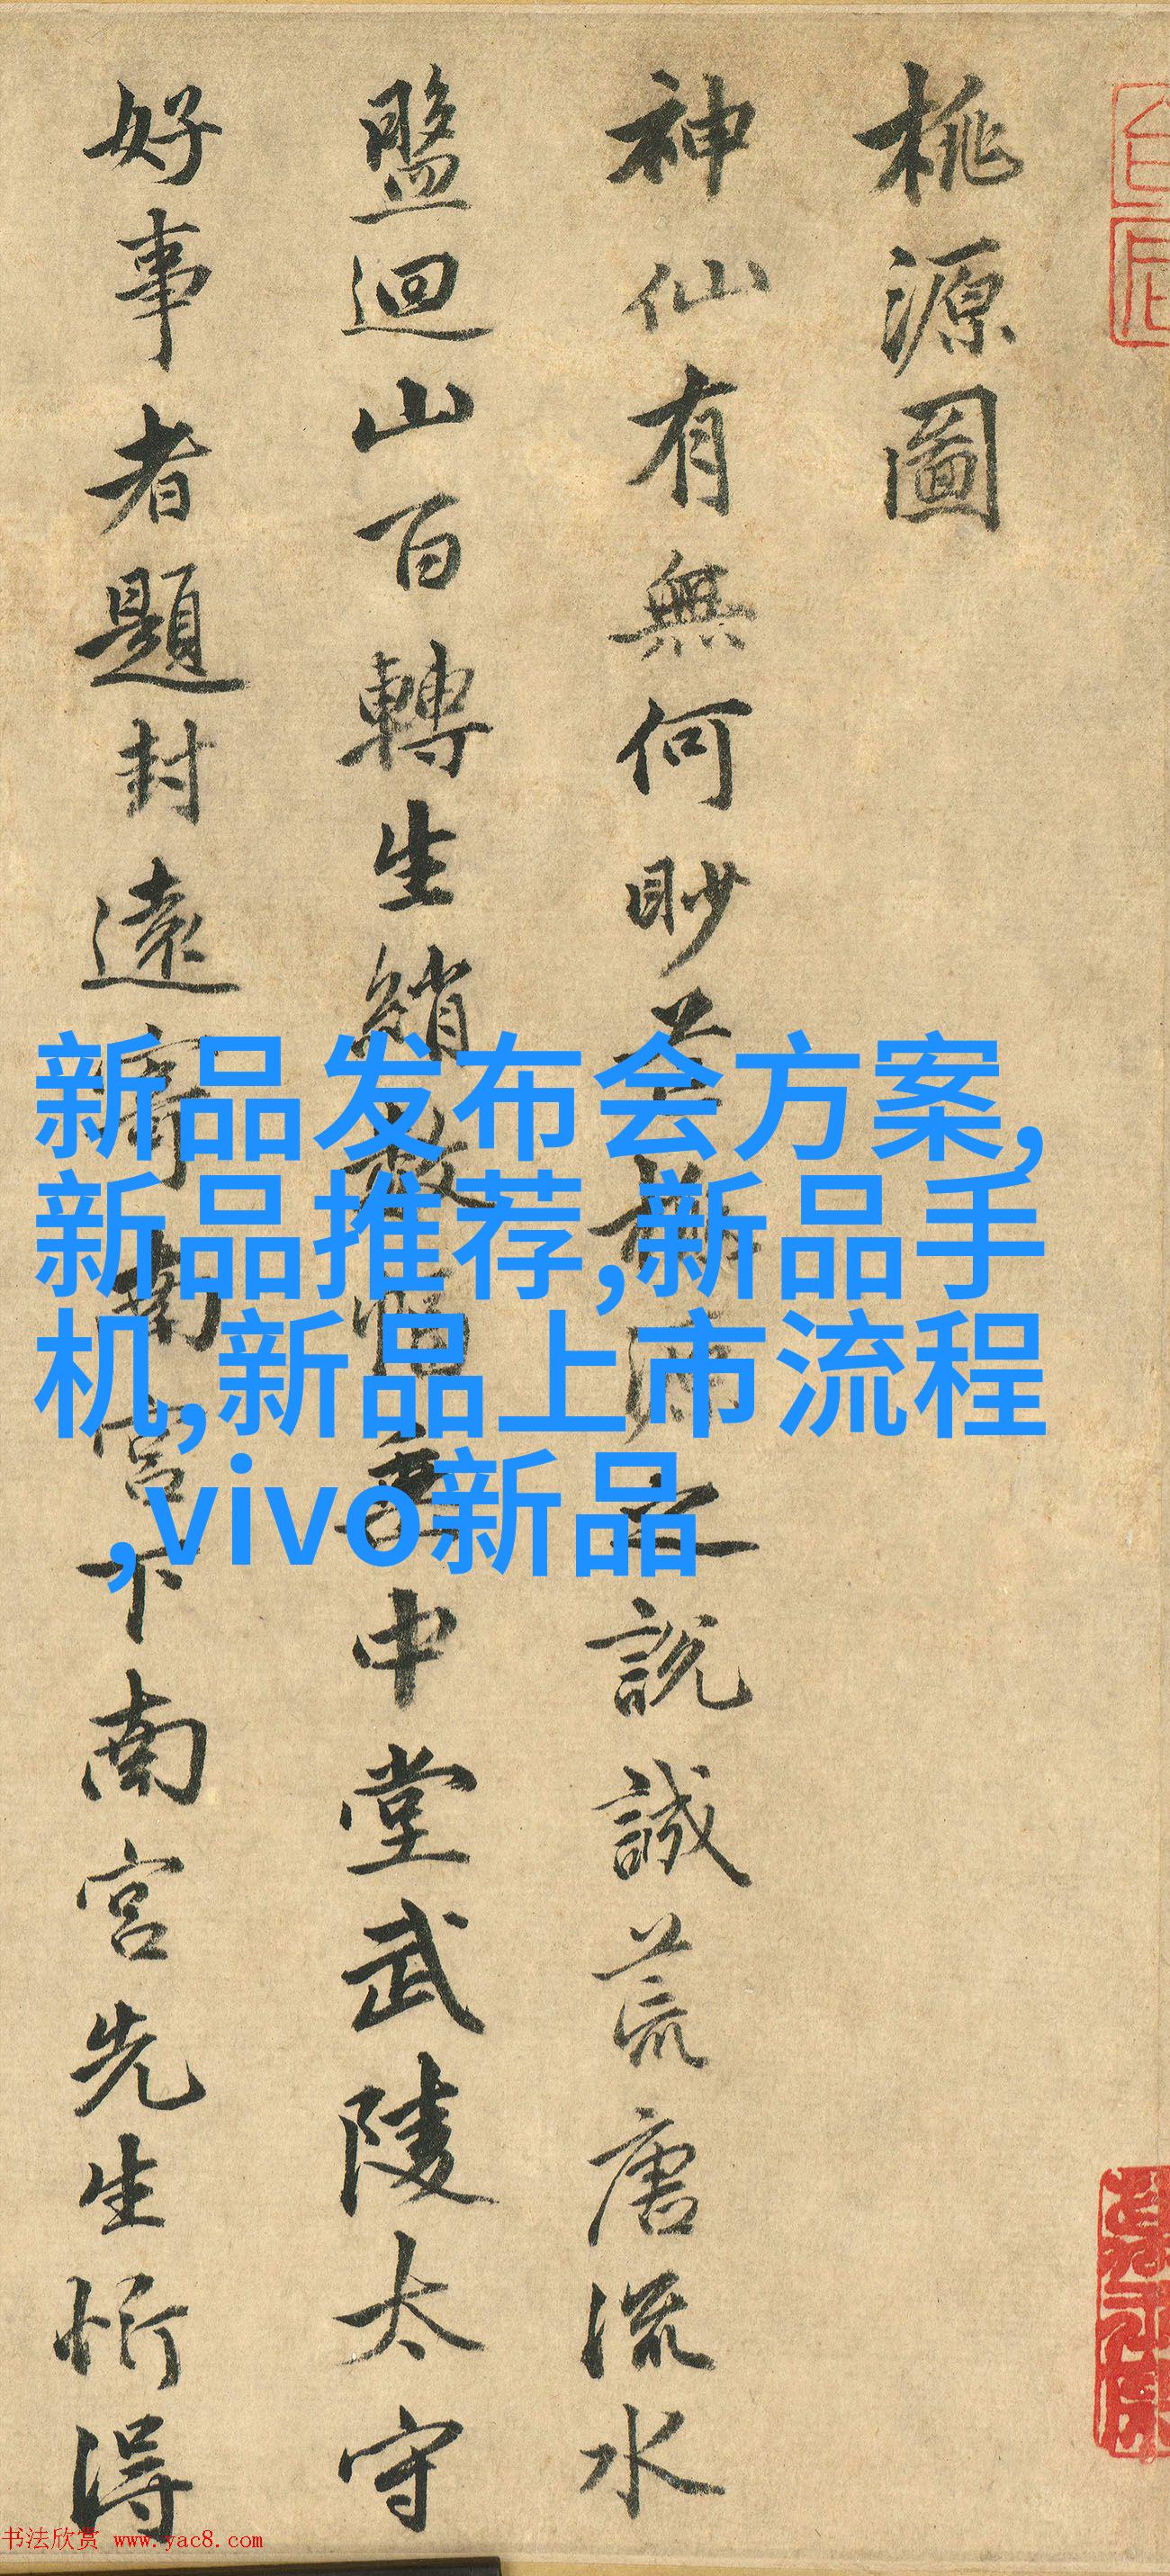 桃源圖
神仙有無何眇芒桃源之說誠荒唐流水
盤迴山百轉生綃數幅垂中堂武陵太守
好事者題封遠寄南宮下南宮先生忻得
新品发布会方案,
新品推荐,新品手
机,新品上市流程
,vivo新品
书法欣赏 www.yac8.com